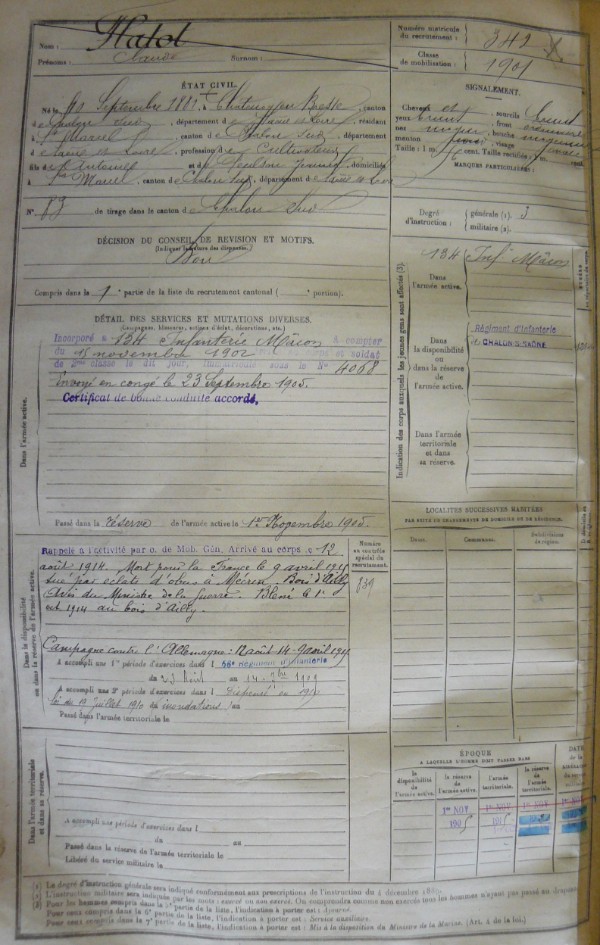 Nom : Platol
Prénoms : Claude Surnoms :
Numéro matricule du recrutement : 342
Classe de mobilisation : 1901
ÉTAT CIVIL.
Né le Septembre 1881, à canton
d Chalon Sud, département d Saône et Loire, résidant
à St Marcel, canton d Chalon Sud, département
d Saône et Loire, profession d Cultivateur
fils d Antoine et d domiciliés
à St Marcel, canton d Chalon Sud, département d Saône et Loire
N° 83 de tirage dans le canton d Chalon Sud
SIGNALEMENT.
Cheveux et sourcils
yeux front
nez moyen, bouche moyenne
menton visage
Taille : 1 m. cent. Taille rectifiée : 1 m. cent.
MARQUES PARTICULIÈRES :
Degré d'instruction : générale (1). 3
militaire (2).
DÉCISION DU CONSEIL DE REVISION ET MOTIFS.
Bon
Compris dans la 1e partie de la liste du recrutement cantonal ( portion).
DÉTAIL DES SERVICES ET MUTATIONS DIVERSES.
(Campagnes, blessures, actions d'éclat, décorations, etc.)
Incorporé à 134 Infanterie Mâcon à compter
du 15 novembre 1902 et soldat
de 2ème classe le dit jour, immatriculé sous le N° 4068
Envoyé en congé le 23 Septembre 1905.
Certificat de bonne conduite accordé.
Dans l'armée active.
Passé dans la réserve de l'armée active le 1er Novembre 1905.
Indication des corps auxquels les jeunes gens sont affectés (3).
Dans l'armée active.
134 Inf. Mâcon
Dans la disponibilité ou dans la réserve de l'armée active.
Régiment d'Infanterie
de CHALON S/SAÔNE
Dans l'armée territoriale et dans sa réserve.
LOCALITÉS SUCCESSIVES HABITÉES
PAR SUITE DE CHANGEMENTS DE DOMICILE OU DE RÉSIDENCE.
Dates. Communes. Subdivisions de région.
Dans la disponibilité ou dans la réserve de l'armée active.
Rappelé à l'activité par o. de Mob. Gén. Arrivé au corps le 12
août 1914. Mort pour la France le 9 avril 1915
tué par éclats d'obus à Bois d'Ailly
Avis du Ministre de la guerre. Blessé le 1er
oct 1914 au bois d'Ailly.
Campagne contre l'Allemagne : 12 août 14 - 9 avril 1915
A accompli une 1re période d'exercices dans l 56e Régiment d'Infanterie
du 23 Août au 14 7bre 1909
A accompli une 2e période d'exercices dans l Dispensé en 1910
loi du 13 Juillet 1910 (inondations) au
Passé dans l'armée territoriale le
Numéro au contrôle spécial du recrutement.
839
Dans l'armée territoriale et dans sa réserve.
A accompli une période d'exercices dans l
du au
Passé dans la réserve de l'armée territoriale le
Libéré du service militaire le
ÉPOQUE
À LAQUELLE L'HOMME DOIT PASSER DANS
la disponibilité de l'armée active. la réserve de l'armée active. l'armée territoriale. la réserve de l'armée territoriale.
DATE de la
1er NOV 1er NOV 1er NOV 1er NOV
1905 1915
(1) Le degré d'instruction générale sera indiqué conformément aux prescriptions de l'instruction du 4 décembre 1889.
(2) L'instruction militaire sera indiquée par les mots : exercé ou non exercé. On comprendra comme non exercés tous les hommes n'ayant pas passé au drapeau
(3) Pour les hommes compris dans la 5e partie de la liste, l'indication à porter est : Ajourné.
Pour ceux compris dans la 6e partie de la liste, l'indication à porter est : Service auxiliaire.
Pour ceux compris dans la 7e partie de la liste, l'indication à porter est : Mis à la disposition du Ministre de la Marine. (Art. 4 de la loi.)